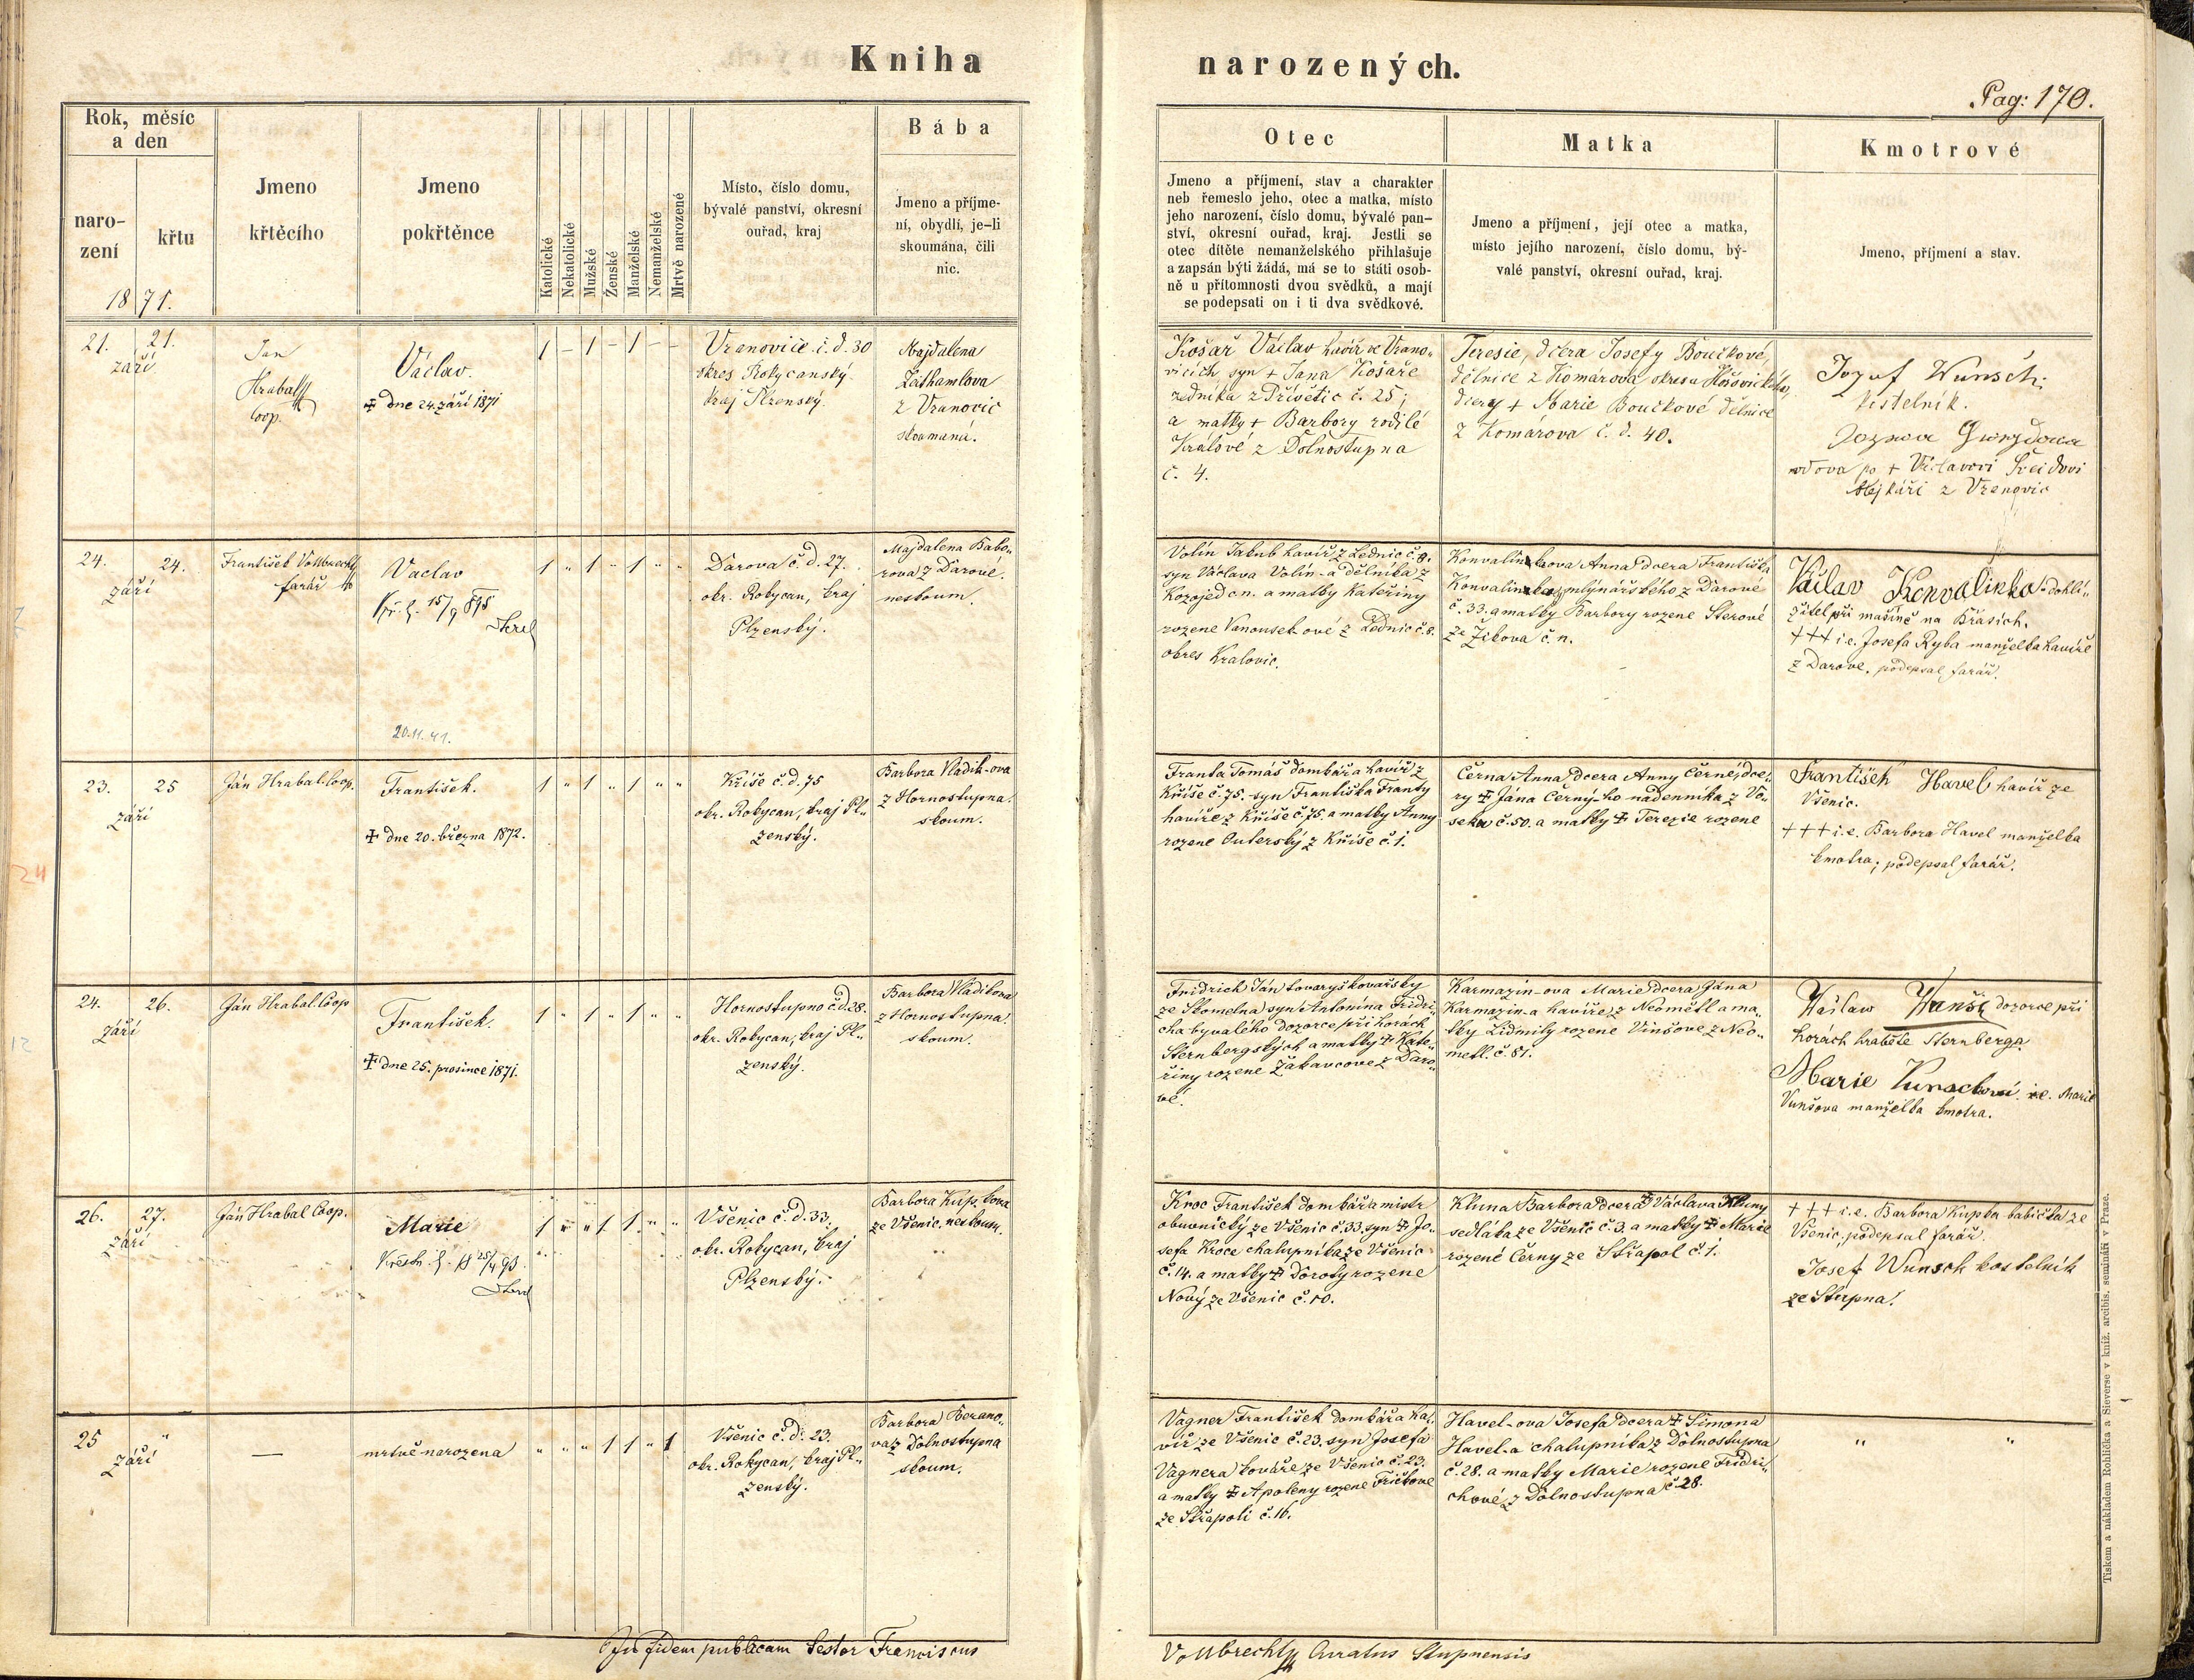 Kniha narozených.
Pag: 170.
Rok, měsíc
a den
naro-
zení
křtu
1871.
Jmeno
křtěcího
Jmeno
pokřtěnce
Katolické
Nekatolické
Mužské
Ženské
Manželské
Nemanželské
Mrtvě narozené
Místo, číslo domu,
bývalé panství, okresní
ouřad, kraj
Bába
Jmeno a příjme-
ní, obydlí, je-li
skoumána, čili
nic.
Otec
Jmeno a příjmení, stav a charakter
neb řemeslo jeho, otec a matka, místo
jeho narození, číslo domu, bývalé pan-
ství, okresní ouřad, kraj. Jestli se
otec dítěte nemanželského přihlašuje
a zapsán býti žádá, má se to státi osob-
ně u přítomnosti dvou svědků, a mají
se podepsati on i ti dva svědkové.
Matka
Jmeno a příjmení, její otec a matka,
místo jejího narození, číslo domu, bý-
valé panství, okresní ouřad, kraj.
Kmotrové
Jmeno, příjmení a stav.
21. 21.
září
Jan
Hrabal
Coop.
Václav.
✝ dne 24. září 1871
1 – 1 – 1 – –
Vranovice č. d. 30
okres Rokycanský
kraj Plzenský.
Majdalena
z Vranovic
skoumaná.
Košař Václav havíř ve Vrano-
vicích syn + Jana Košaře
zedníka z Přívětic č. 25;
a matky + Barbory rodilé
Králové z Dolnostupna
č. 4.
Teresie, dcera Josefy Boučkové,
dělnice z Komárova okresu Hořovického,
dcery + Marie Boučkové dělnice
z Komárova č. d. 40.
Jozuf Wunsch;
kostelník.
vdova po + Václavovi
z Vranovic
24. 24.
září
František Vollbrecht
farář
Vaclav
15/9 895
20.11.41.
1 " 1 " 1 " "
Darova č. d. 27.
okr. Rokycan, kraj
Plzenský.
Majdalena Babo-
rova z Darove.
neskoum.
Volín Jakub havíř z Lednic č. 8.
syn Václava Volín-a dělníka z
Kozojed č. n. a matky Kateřiny
rozene Vanousek-ové z Lednic č. 8.
okres Kralovic.
Konvalinkova Anna dcera Františka
Konvalinka mlynářského z Darové
č. 33. a matky Barbory rozene Sterové
ze Žikova č. n.
Václav Konvalinka dohlí-
žitel při mašíně na Břasích.
+++ i.e. Josefa Ryba manželka havíře
z Darove. podepsal farář.
23. 25
září
Ján Hrabal Coop.
František.
✝ dne 20. března 1872.
1 " 1 " 1 " "
Kříše č. d. 75
okr. Rokycan, kraj Pl-
zenský.
Barbora Vladik-ova
z Hornostupna.
skoum.
Franta Tomáš domkář a havíř z
Kříše č. 75. syn Františka Franty
havíře z Kříše č. 75. a matky Anny
rozene Outerský z Kříše č. 1.
Černa Anna dcera Anny Černé, dce-
ry ✝ Jána Černý-ho nádenníka z Vo-
seka č. 50. a matky ✝ Terezie rozene
František Havel, havíř ze
Všenic.
+++ i.e. Barbora Havel manželka
kmotra; podepsal farář.
24. 26.
září
Ján Hrabal Coop
František.
✝ dne 25. prosince 1871.
1 " 1 " 1 " "
Hornostupno č. d. 28.
okr. Rokycan, kraj Pl-
zenský.
Barbora Vladikova
z Hornostupna.
skoum.
Fridrich Ján tovaryš kovařský
ze Skomelna syn Antonína Fridri-
cha byvalého dozorce při horách
Šternbergských a matky ✝ Kate-
řiny rozene Žakavcove z Daro-
vé.
Karmazín-ova Marie dcera Jána
Karmazin-a havíře z Neoměřl a ma-
tky Lidmily rozene Vinšove z Neo-
meřl. č. 81.
Wáclaw Wunš dozorce při
horách hraběte Sternberga.
Marie Vunschová i.e. Marie
Vunšova manželka kmotra.
26. 27.
září
Ján Hrabal Coop.
Marie
1 " " 1 1 " "
Všenic č. d. 33.
okr. Rokycan, kraj
Plzenský.
Barbora Kupkova
ze Všenic. neskoum.
Kroc František domkář a mistr
obuvnický ze Všenic č. 33. syn ✝ Jo-
sefa Kroce chalupníka ze Všenic
č. 14. a matky ✝ Doroty rozene
Nový ze Všenic č. 10.
Kluna Barbora dcera ✝ Václava Kluny
sedláka ze Všenic č. 3. a matky ✝ Marie
rozené Černy ze Střapol č. 1.
+++ i.e. Barbora Kupka babička ze
Všenic, podepsal farář.
Josef Wunsch kostelník
ze Stupna.
25 "
září
—
mrtvě narozena
" " " 1 1 " 1
Všenic č. d. 23.
okr. Rokycan, kraj Pl-
zenský.
Barbora Berano-
va z Dolnostupna
skoum.
Vagner František domkář a ha-
víř ze Všenic č. 23. syn Josefa
Vagnera kováře ze Všenic č. 23.
a matky ✝ Apoleny rozene Fričkove
ze Střapolí č. 16.
Havel-ova Josefa dcera ✝ Šimona
Havel-a chalupníka z Dolnostupna
č. 28. a matky Marie rozene Fridri-
chové z Dolnostupna č. 28.
" "
In fidem publicam Sestor Franciscus
Vollbrecht Curatus Stupnensis
Tiskem a nákladem Rohlíčka a Sieverse v kniž. arcibis. semináři v Praze.